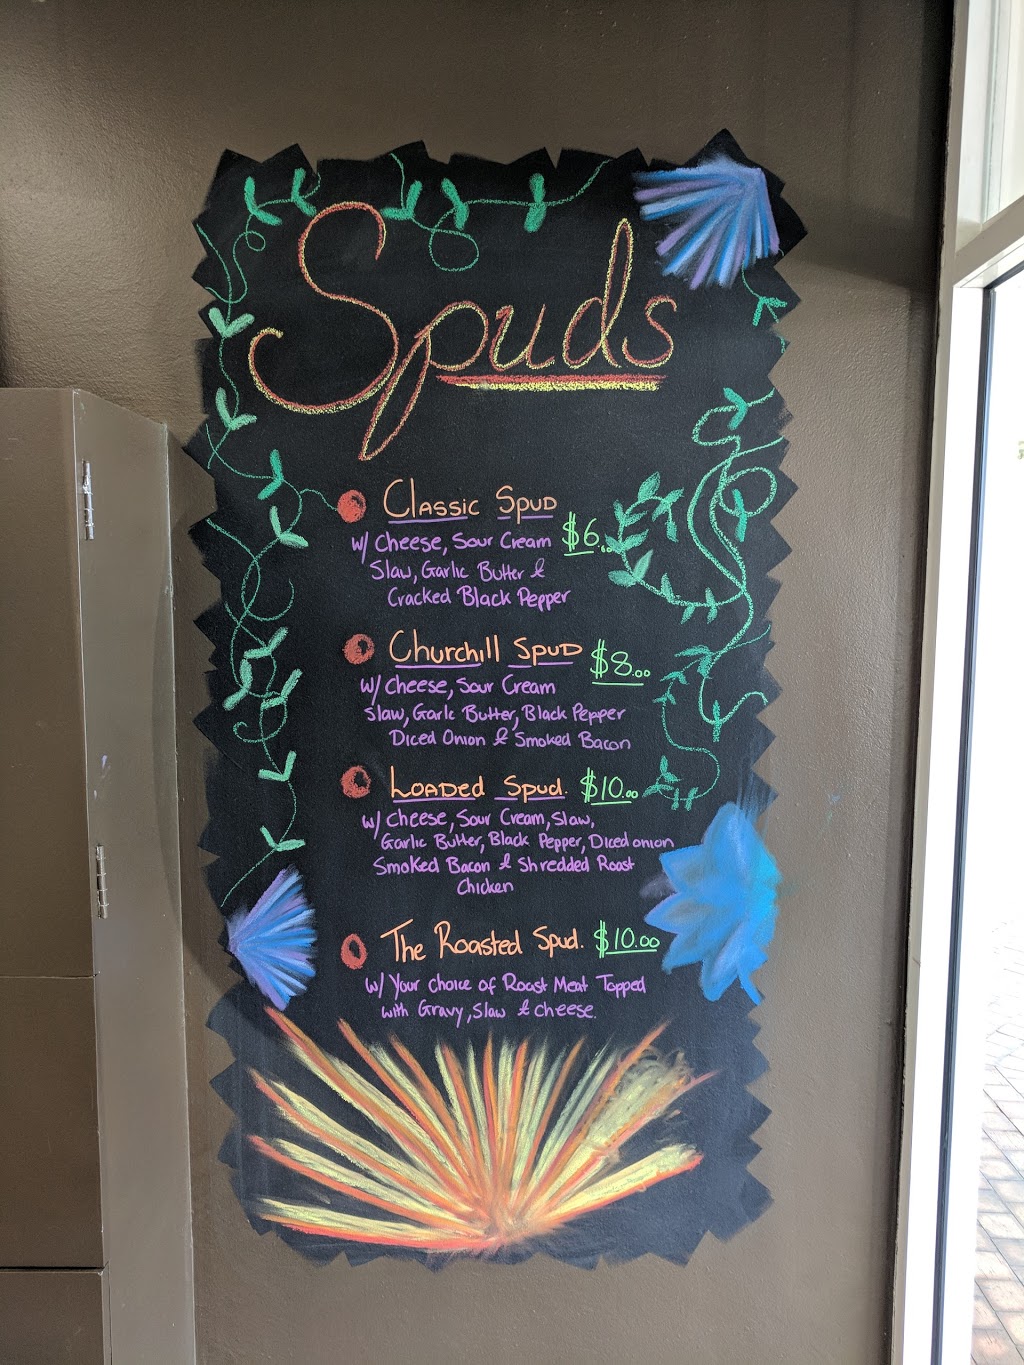 Spuds
Classic Spud
w/ Cheese, Sour Cream $6.00
Slaw, Garlic Butter &
Cracked Black Pepper
Churchill Spud $8.00
w/ Cheese, Sour Cream
Slaw, Garlic Butter, Black Pepper
Diced Onion & Smoked Bacon
Loaded Spud. $10.00
w/ Cheese, Sour Cream, Slaw,
Garlic Butter, Black Pepper, Diced onion
Smoked Bacon & Shredded Roast
Chicken
The Roasted Spud. $10.00
w/ Your choice of Roast Meat Topped
with Gravy, Slaw & Cheese.